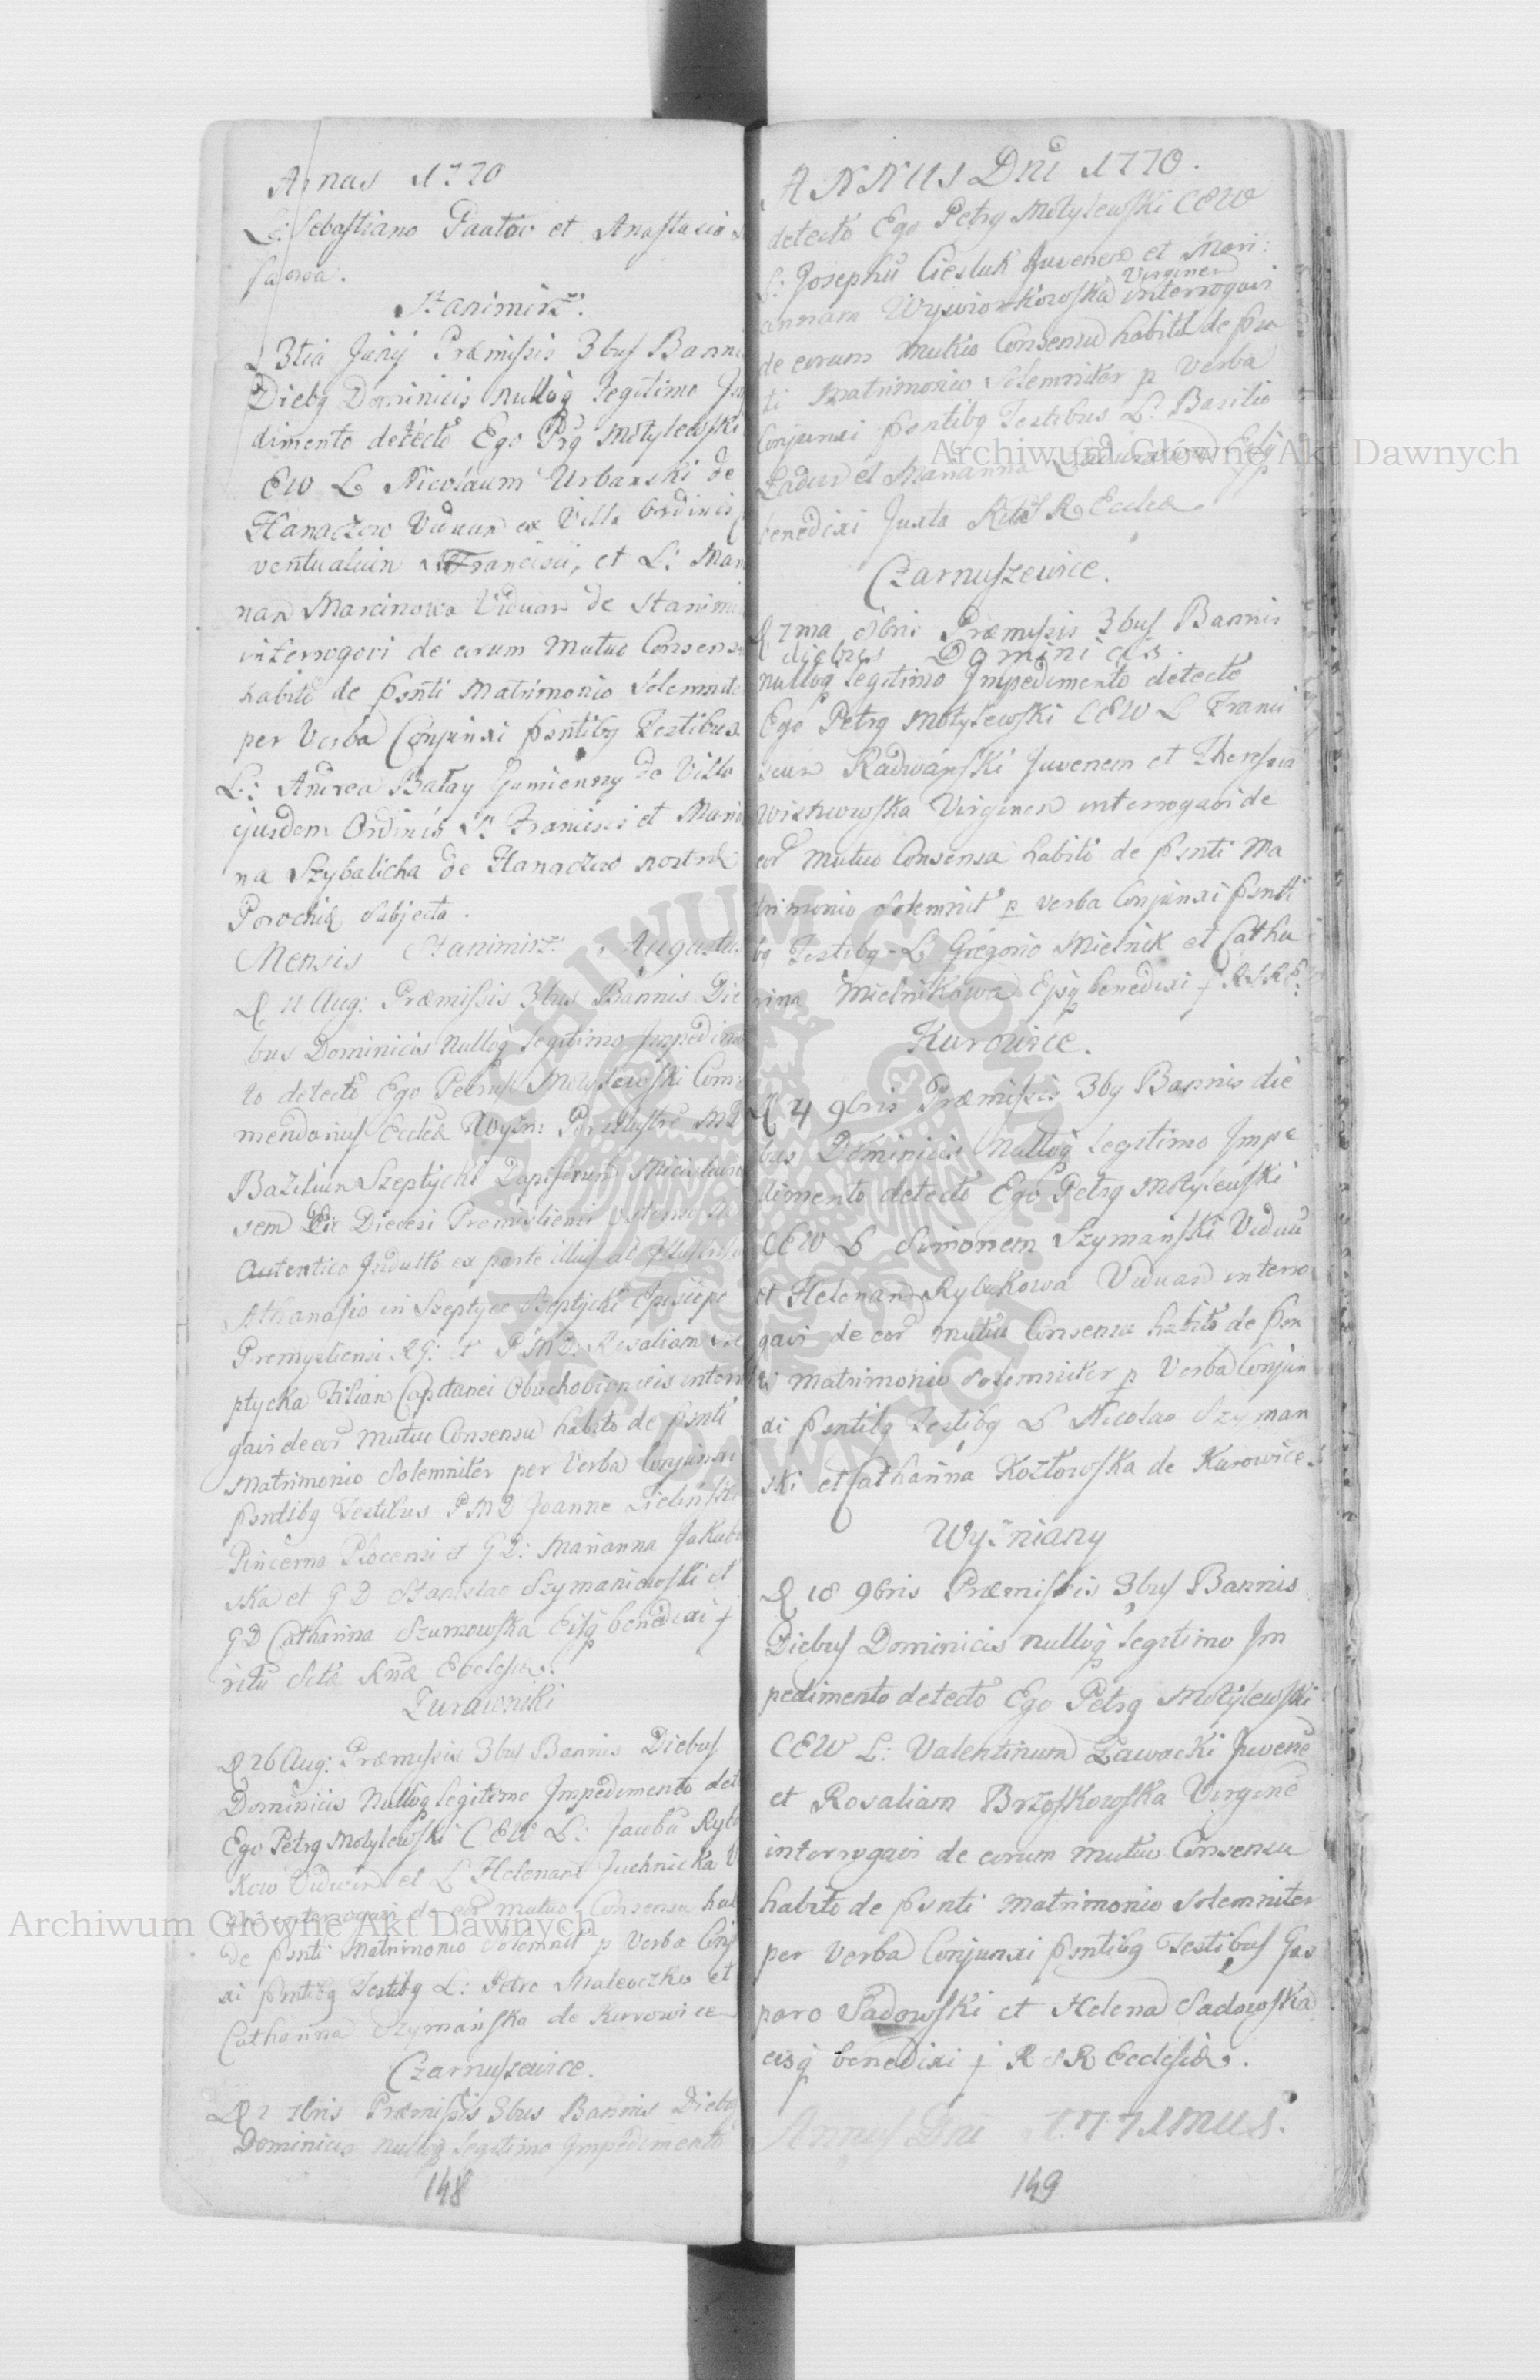 Annus 1770
L: Sebastiano Paatow et Anastasia
sa owa.
Stanimirz.
D 3tia Junij Præmissis 3bus Bannis
Diebq Dominicis nulloq legitimo Im
dimento detecto Ego Ptrq Motylewski
EW L Nicolaum Urbanski de
Hanaczow Viduum ex Villa Ordinis
ventualium S Francisci, et L: Mari
nam Marcinowa Viduam de Stanimi
interrogavi de eorum Mutuo Consensu
habito de psnti Matrimonio Solemnite
per Verba Conjunxi psntibq Testibus
L: Andrea Batay Gumienny de Villa
ejusdem Ordinis S. Francisci et Maria
na Szybalicha de Hanaczow nostræ
Parochiæ Subjecta.
Mensis Stanimirz Augustus
D 11 Aug: Præmissis 3bus Bannis Die
bus Dominicis nulloq legitimo Impedimen
to detecto Ego Petrus Motylewski Com
mendarius Eccleæ Wysn: Perillustre MD
Bazilium Szeptycki Dapiferum Micislavi
sem Diecesi Premisliensi Ostenso
Autentico Indulto ex parte illius ac Illustrissi
Athanasio in Szeptyce Szeptycki Episcopo
Premysliensi RG: et PMD: Rosaliam Sze
ptycka Filiam Capitanei Obuchoviensis interro
gavi de eor mutuo Consensu habito de psnti
Matrimonio Solemniter per Verba Conjunxi
psntibq Testibus PMD Joanne Zielinski
Pincerna Plocensi et GD: Marianna Jakubo
ska et GD Stanislao Szymaniewski et
GD Catharina Szumowska Eisq benedixi j
ritu Sctæ Rnæ Ecclesiæ.
Turawniki
D 26 Aug: Præmissis 3bus Bannis Diebus
Dominicis Nulloq legitimo Impedimento dete
Ego Petrq Motylewski CEW L: Jacobu Rybi
kow Viduum et L Helenam Juchnicka V
interrogavi de eor mutuo Consensu hab
de psnti Matrimonio Solemnit p Verba Conj
xi psntibq Testibq L: Petro Maleczko et
Catharina Szymanska de Kurowice
Czarnuszewice.
D 2 7bris Præmissis 3bus Bannis Diebq
Dominicis nulloq legitimo Impedimento
148
ANNUS Dni 1770.
detecto Ego Petrq Motylewski CEW
L: Josephu Ciesluk Juvenem et Mari:
Virginem
annam Wywiorkowska interrogavi
de eorum Mutuo Consensu habito de psn
ti Matrimonio Solemniter p Verba
Conjunxi psntibq Testibus L: Bazilio
Ladur et Marianna Ladurowa Eisq
benedixi Juxta Ritu S R Eccleæ
Czarnuszewice.
D 7ma 8bris Præmissis 3bus Bannis
diebus Dominicis.
nulloq legitimo Impedimento detecto
Ego Petrq Motylewski CEW L Franci
scum Radwanski Juvenem et Theresia
Wisniowska Virginem interrogavi de
eor mutuo Consensu habiti de psnti Ma
trimonio Solemnit p verba Conjunxi psnti
bq Testibq L Gregorio Mielnik et Catha
rina Mielnikowa Ejsq benedixi j RSRE:
Kurowice.
D 4 9bris Præmissis 3bq Bannis die
bus Dominicis Nulloq legitimo Impe
dimento detecto Ego Petrq Motylewski
CEW L Simonem Szymanski Viduu
et Helenam Rybikowa Viduam interro
gavi de eor mutuo Consensu habito de psn
ti matrimonio Solemniter p Verba Conjun
xi psntibq Testibq L Nicolao Szyman
ski et Catharina Kozlowska de Kurowice
Wyśniany
D 18 9bris Præmissis 3bus Bannis
Diebus Dominicis nulloq legitimo Im
pedimento detecto Ego Petrq Motylewski
CEW L: Valentinum Zawacki Juvene
et Rosaliam Brzoskowska Virgine
interrogavi de eorum mutuo Consensu
habito de psnti Matrimonio Solemniter
per Verba Conjunxi psntibq Testibus Gas
paro Sadowski et Helena Sadowska
eisq benedixi j R S R Ecclesiæ.
Annus Dni 1771mus.
149
Archiwum Główne Akt Dawnych
Archiwum Główne Akt Dawnych
ARCHIWUM GŁÓWNE AKT DAWNYCH